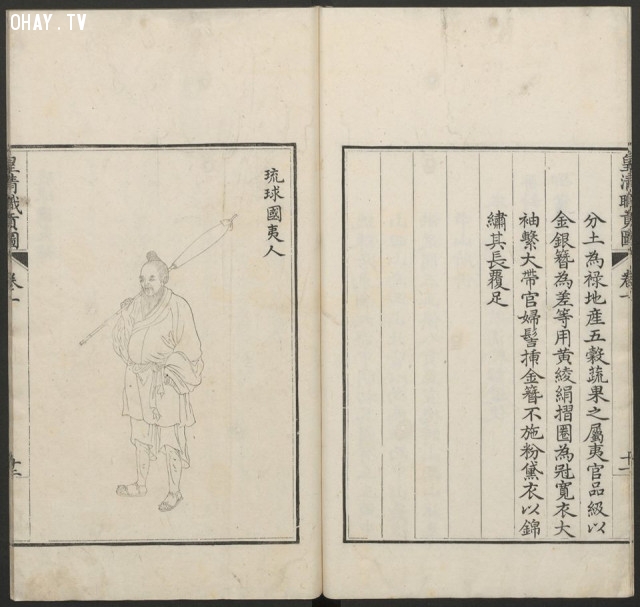 OHAY.TV
皇清職貢圖
卷一
十一
分土為祿地產五穀蔬果之屬夷官品級以
金銀簪為差等用黃綾絹摺圈為冠寬衣大
袖繫大帶官婦髻插金簪不施粉黛衣以錦
繡其長覆足
琉球國夷人
皇清職貢圖
卷一
十二